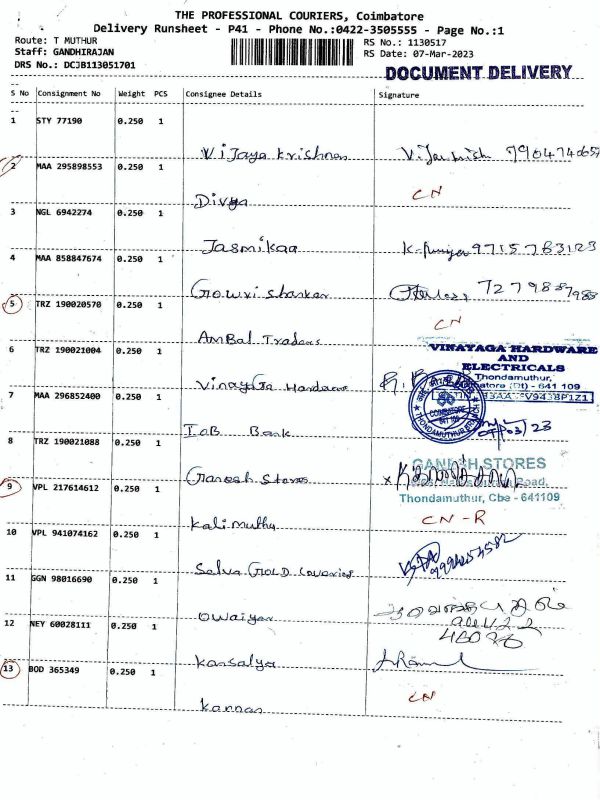 THE PROFESSIONAL COURIERS, Coimbatore
Delivery Runsheet - P41 - Phone No.:0422-3505555 - Page No.:1
Route: T MUTHUR
Staff: GANDHIRAJAN
DRS No.: DCJB113051701
RS No.: 1130517
RS Date: 07-Mar-2023
DOCUMENT DELIVERY
S No Consignment No Weight PCS Consignee Details Signature
1 STY 77190 0.250 1
Vijaya Krishnan
2 MAA 295898553 0.250 1
CN
Divya
3 NGL 6942274 0.250 1
Jasmikaa 9715783123
4 MAA 858847674 0.250 1
Gowri shankar
5 TRZ 190020570 0.250 1
CN
Ambal Traders
6 TRZ 190021004 0.250 1
VINAYAGA HARDWARE
AND
ELECTRICALS
Thondamuthur,
(Dt) - 641 109
Vinayaga Hardware
7 MAA 296852400 0.250 1
COIMBATORE
IOB Bank
8 TRZ 190021088 0.250 1
GANESH STORES
Road,
Thondamuthur, Cbe - 641109
Ganesh Stores
9 VPL 217614612 0.250 1
CN - R
Kalimuthu
10 VPL 941074162 0.250 1
Selva GOLD Covering
11 GGN 98016690 0.250 1
Owaiyar
12 NEY 60028111 0.250 1
Kansalya
13 BOD 365349 0.250 1
CN
Kannan